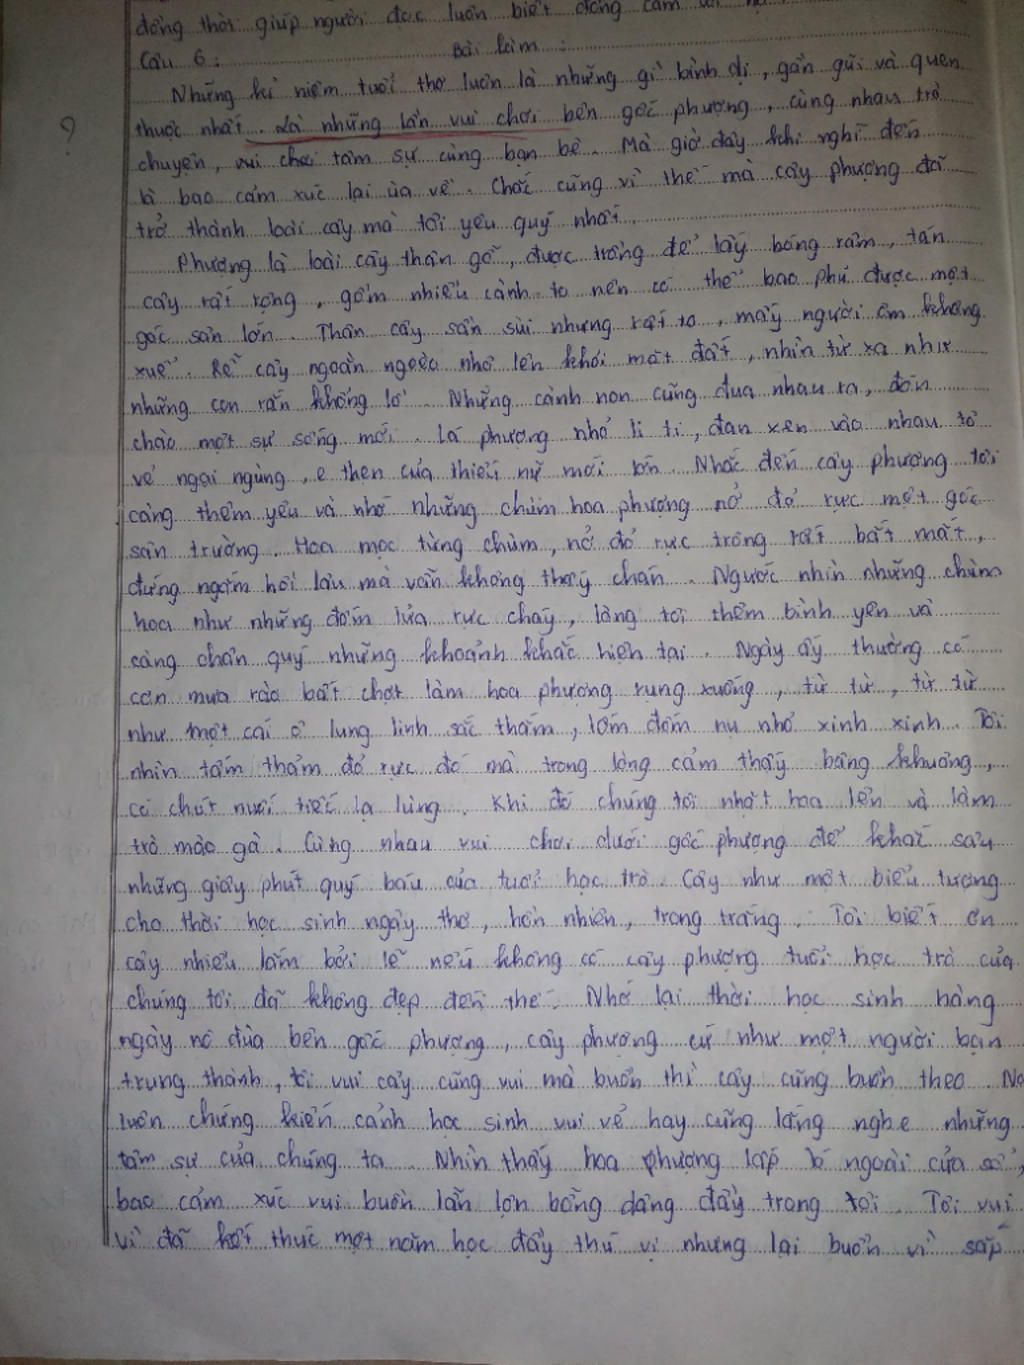 đồng thời giúp người đọc luôn biết đồng cảm với
Câu 6: Bài làm:
Những kỉ niệm tuổi thơ luôn là những gì bình dị, gần gũi và quen
?
thuộc nhất. Là những lần vui chơi bên gốc phượng, cùng nhau trò
chuyện, vui chơi tâm sự cùng bạn bè. Mà giờ đây khi nghĩ đến
là bao cảm xúc lại ùa về. Chắc cũng vì thế mà cây phượng đã
trở thành loài cây mà tôi yêu quý nhất.
Phượng là loài cây thân gỗ, được trồng để lấy bóng râm, tán
cây rất rộng, gồm nhiều cành to nên có thể bao phủ được một
góc sân lớn. Thân cây sần sùi nhưng rất to, mấy người ôm không
xuể. Rễ cây ngoằn ngoèo nhô lên khỏi mặt đất, nhìn từ xa như
những con rắn khổng lồ. Những cành non cũng đua nhau ra, đón
chào một sự sống mới. Lá phượng nhỏ li ti, đan xen vào nhau tỏ
vẻ ngại ngùng, e then của thiếu nữ mới lớn. Nhắc đến cây phượng tôi
càng thêm yêu và nhớ những chùm hoa phượng nở đỏ rực một góc
sân trường. Hoa mọc từng chùm, nở đỏ rực trông rất bắt mắt,
đứng ngắm hồi lâu mà vẫn không thấy chán. Ngước nhìn những chùm
hoa như những đốm lửa rực cháy, lòng tôi thêm bình yên và
càng chân quý những khoảnh khắc hiện tại. Ngày ấy thường có
cơn mưa rào bất chợt làm hoa phượng rụng xuống, từ từ, từ từ
như một cái ô lung linh sắc thắm, lốm đốm nụ nhỏ xinh xinh. Tôi
nhìn tấm thảm đỏ rực đó mà trong lòng cảm thấy bâng khuâng,
có chút nuối tiếc lạ lùng. Khi đó chúng tôi nhặt hoa lên và làm
trò mào gà. Cùng nhau vui chơi dưới gốc phượng để khắc sâu
những giây phút quý báu của tuổi học trò. Cây như một biểu tượng
cho thời học sinh ngây thơ, hồn nhiên, trong trắng. Tôi biết ơn
cây nhiều lắm bởi lẽ nếu không có cây phượng tuổi học trò của
chúng tôi đã không đẹp đến thế. Nhớ lại thời học sinh hàng
ngày nô đùa bên gốc phượng, cây phượng cứ như một người bạn
trung thành, tôi vui cây cũng vui mà buồn thì cây cũng buồn theo. Nó
luôn chứng kiến cảnh học sinh vui vẻ hay cũng lắng nghe những
tâm sự của chúng ta. Nhìn thấy hoa phượng lấp ló ngoài cửa sổ,
bao cảm xúc vui buồn lẫn lộn bỗng dâng đầy trong tôi. Tôi vui
vì đã kết thúc một năm học đầy thú vị nhưng lại buồn vì sắp